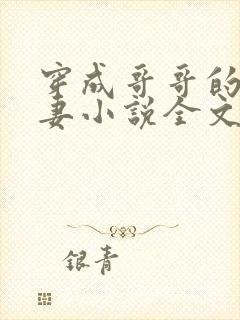 穿成哥哥的
妻小说全文
银青